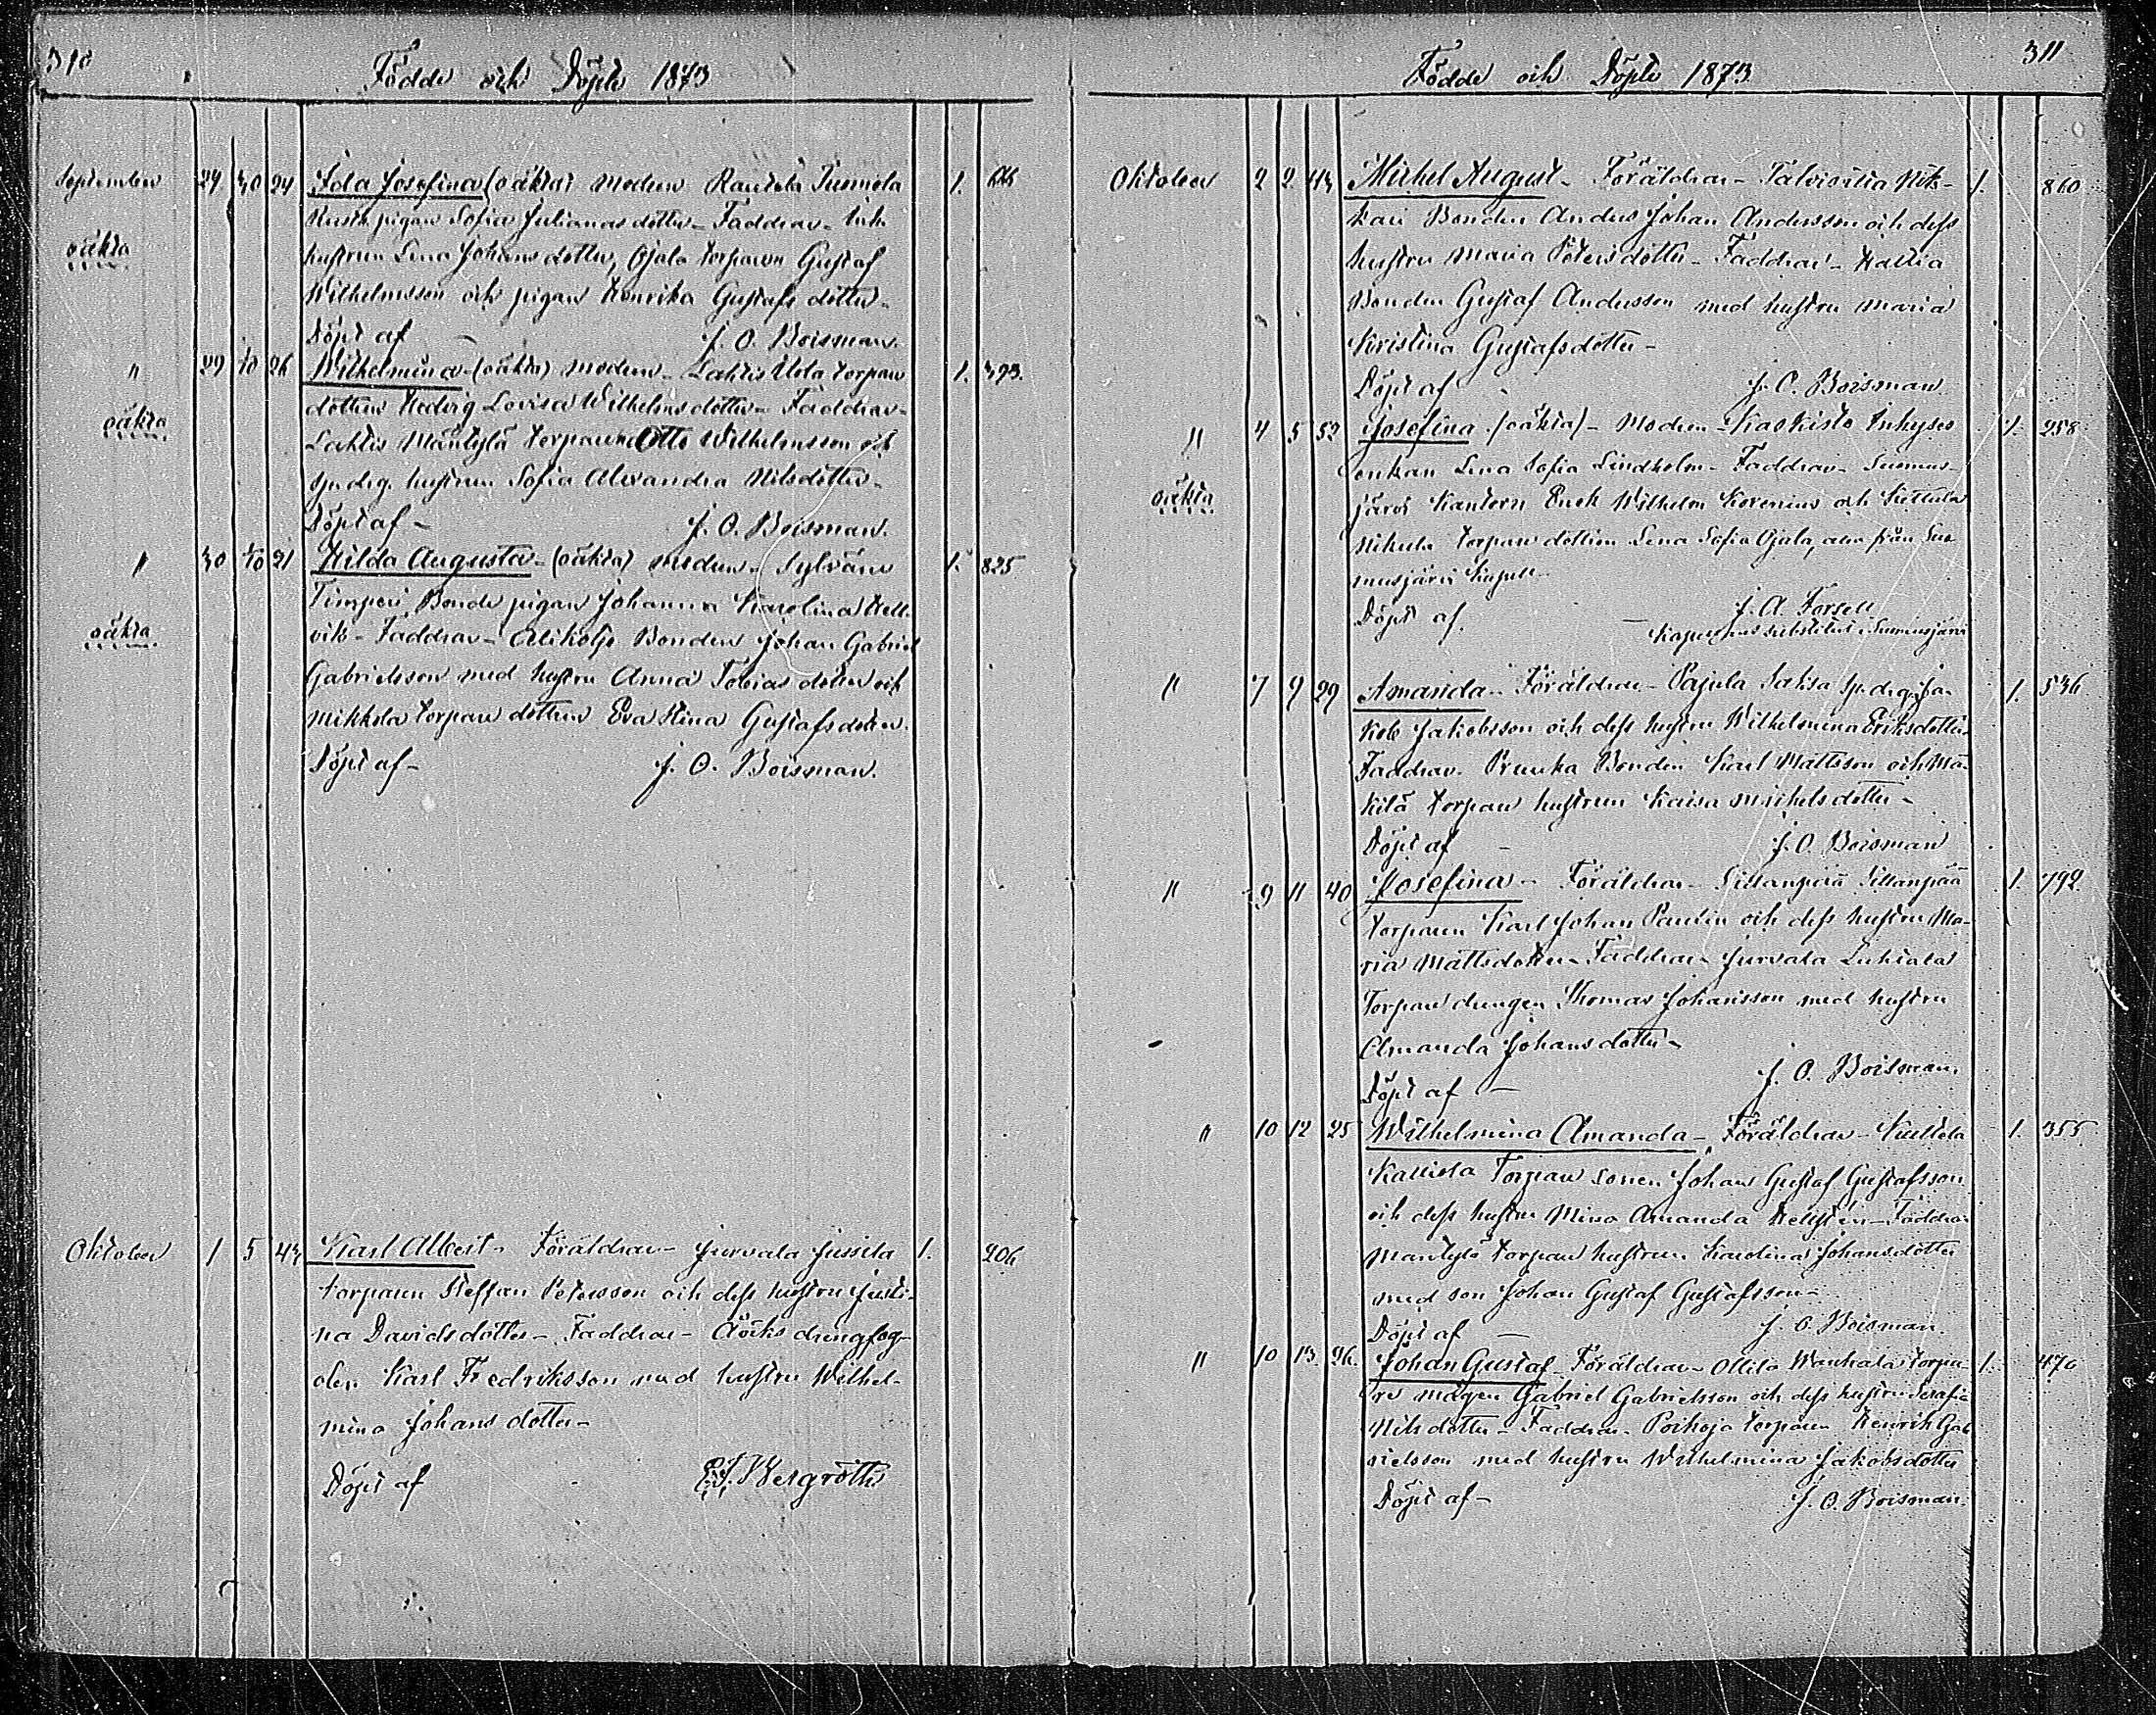 310
Födde och Döpte 1873
September 29 30 24 Ida Josefina (oäkta) modren Rautela Tuomola 1.
oäkta
Rusth. pigan Sofia Julianasdotter - Faddrar - Inh.
hustrun Lena Johansdotter, Ojala torparn Gustaf
Wilhelmsson och pigan Henrika Gustafsdotter -
Döpt af - J. O. Boisman.
" 29 26 Wilhelmina (oäkta) modren - Lahtis Uola torpare
oäkta
dottern Hedvig Lovisa Wilhelmsdotter - Faddrar -
Lahtis Mäntylä torparn Otto Wilhelmsson och
sp. drg. hustrun Sofia Alexandra Nilsdotter -
Döpt af - J. O. Boisman.
1. 393.
" 30 21 Hilda Augusta - (oäkta) modren - Sylvänä 1. 825
oäkta
Timperi Bonde pigan Johanna Karolina Hell-
vik - Faddrar - Aliköljo Bonden Johan Gabriel
Gabrielsson med hustru Anna Tobiasdotter och
Mikkola torpare dottern Eva Stina Gustafsdotter.
Döpt af - J. O. Boisman.
Oktober 1 5 43 Karl Albert - Föräldrar - Jurvala Jussila 1. 206
torparen Steffan Petersson och dess hustru Justi-
na Davidsdotter - Faddrar - drengfog-
den Karl Fredriksson med hustru Wilhel-
mina Johansdotter -
Döpt af - E. J. Bergroth.
311
Födde och Döpte 1873
Oktober 2 2 43 Michel August - Föräldrar - Talvisilta Nik- 1. 860
kari Bonden Anders Johan Andersson och dess
hustru Maria Petersdotter - Faddrar - Hallia
Bonden Gustaf Andersson med hustru Maria
Kristina Gustafsdotter -
Döpt af - J. O. Boisman
" 4 5 32 Josefina (oäkta) - Modren - Kaskisto Inhyses 1. 258
oäkta
enkan Lena Sofia Lindholm - Faddrar - Suomus-
järvi Kantorn Enok Wilhelm Korenius och Kettula
Nikula torpare dottern Lena Sofia Ojala, alla från Suo-
musjärvi kapell -
Döpt af. - J. A. Forsell
Kapellans substitut i Suomusjärvi
" 7 9 29 Amanda - Föräldrar - Pajula Saksa sp. drg. Ja- 1. 536
kob Jakobsson och dess hustru Wilhelmina Eriksdotter.
Faddrar - Prunka Bonden Karl Mattsson och Mä-
kilä torpare hustrun Kaisa Michelsdotter -
Döpt af - J. O. Boisman
" 9 11 40 Josefina - Föräldrar - Sillanpää Sillanpää 1. 792
torparen Karl Johan Paulin och dess hustru Ma-
ria Mattsdotter - Faddrar - Jurvala Luhtala
Torpare drengen Thomas Johansson med hustru
Amanda Johansdotter -
Döpt af - J. O. Boisman.
" 10 12 25 Wilhelmina Amanda - Föräldrar - 1. 355
Kallista Torpare sonen Johan Gustaf Gustafsson
och dess hustru Mina Amanda Hellstén - Faddrar
Mäntylä torpare hustrun Karolina Johansdotter
med son Johan Gustaf Gustafsson -
Döpt af - J. O. Boisman.
" 10 13. 26. Johan Gustaf - Föräldrar - Ollila Wanhala torpa- 1. 470
re mågen Gabriel Gabrielsson och dess hustru Serafia
Nilsdotter - Faddrar - Poikoja torparen Henrik Gab-
rielsson med hustru Wilhelmina Jakobsdotter
Döpt af - J. O. Boisman.